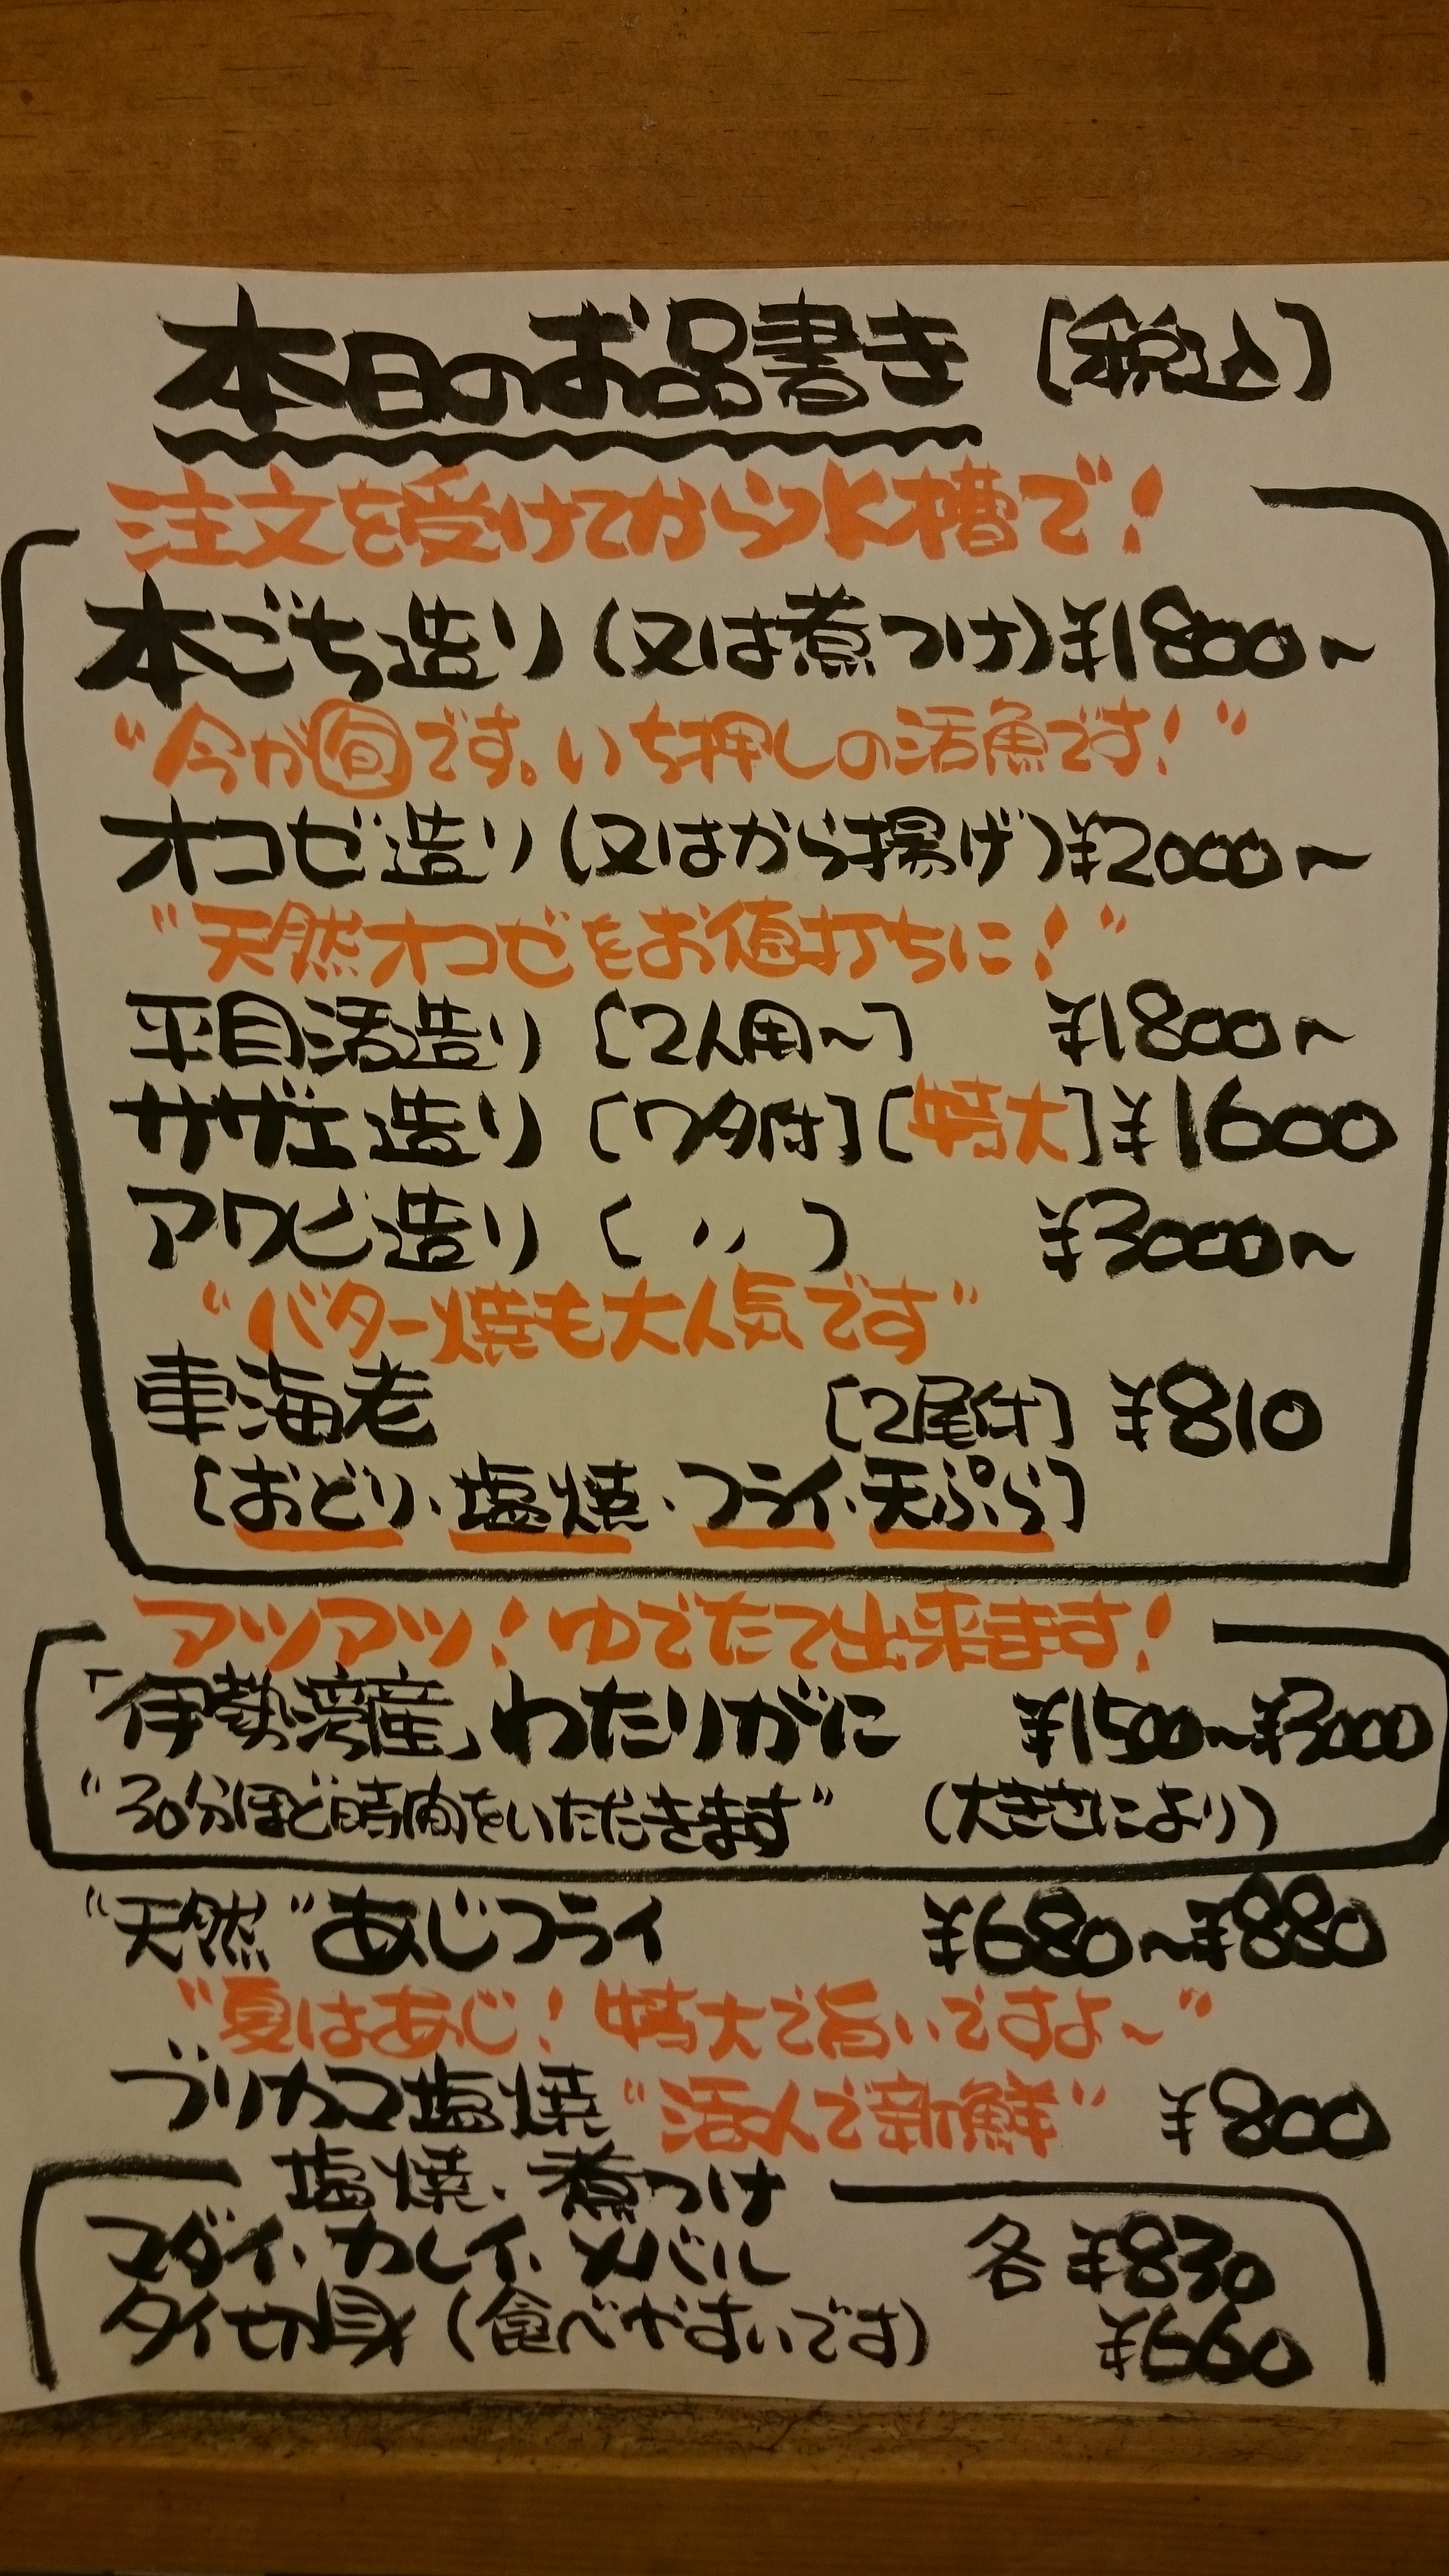 本日のお品書き [税込]
注文を受けてから水槽で!
本ごち造り(又は煮つけ)¥1800~
"今が旬です。いち押しの活魚です!"
オコゼ造り(又はから揚げ)¥2000~
"天然オコゼをお値打ちに!"
平目活造り [2人用~] ¥1800~
サザエ造り [ワタ付][特大]¥1600
アワビ造り ( 〃 ) ¥3000~
"バター焼も大人気です"
車海老 [2尾付] ¥810
[おどり・塩焼・フライ・天ぷら]
アツアツ!ゆでたて出来ます!
「伊勢湾産」わたりがに ¥1500~¥3000
"30分ほど時間をいただきます" (大きさにより)
"天然"あじフライ ¥680~¥880
"夏はあじ!特大で旨いですよ~"
ブリカマ塩焼"活〆で新鮮" ¥800
塩焼・煮つけ
マダイ・カレイ・メバル 各¥830
タイ切身(食べやすいです) ¥660